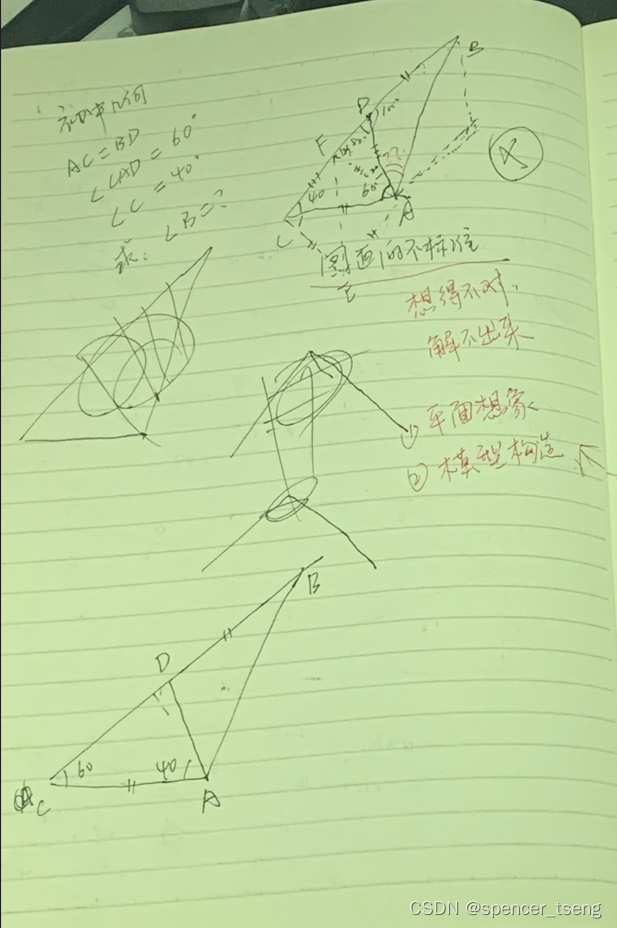 初中几何
AC=BD
∠CAD=60°
∠C=40°
求: ∠B=?
B
D
100°
F
80°
??
40
60
C
A
E
图画的不标准
想得不对,
解不出来
① 平面想象
② 模型构造
B
D
60
40
C
A
CSDN @spencer_tseng